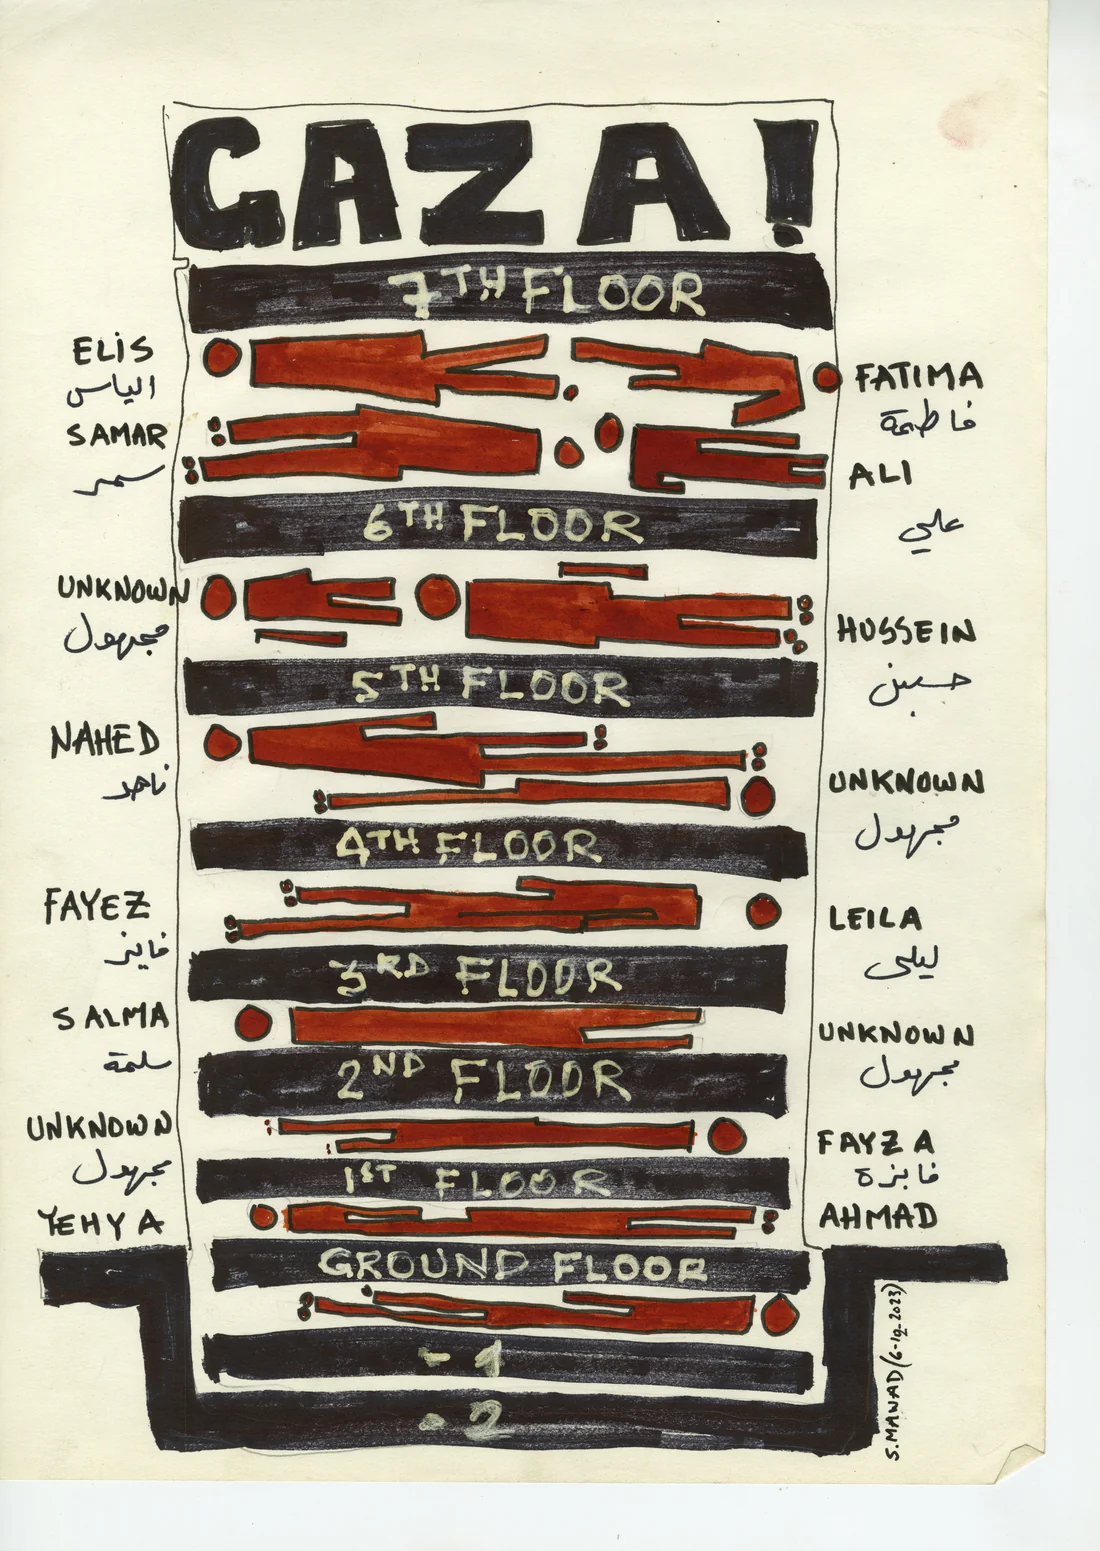 GAZA!
7TH FLOOR
ELiS
الياس
FATIMA
فاطمة
SAMAR
سمر
ALI
علي
6TH FLOOR
UNKNOWN
مجهول
HUSSEIN
حسين
5TH FLOOR
NAHED
ناهد
UNKNOWN
مجهول
4TH FLOOR
FAYEZ
فايز
LEILA
ليلى
3RD FLOOR
SALMA
سلمة
UNKNOWN
مجهول
2ND FLOOR
UNKNOWN
مجهول
FAYZA
فايزة
1ST FLOOR
YEHYA
AHMAD
GROUND FLOOR
-1
-2
S.MAWAD (6-12-2023)